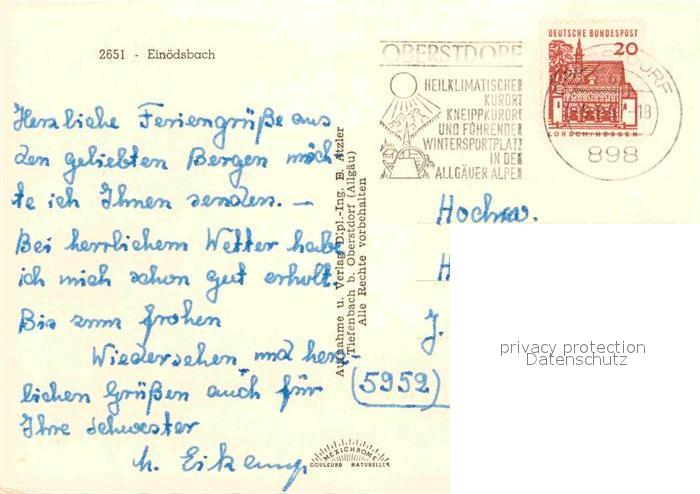 2651 - Einödsbach
Herzliche Feriengrüße aus
den geliebten Bergen möch
te ich Ihnen senden. —
Bei herrlichem Wetter habe
ich mich schon gut erholt.
Bis zum frohen
Wiedersehen und herz
lichen Grüßen auch für
Ihre Schwester
M. Eikamp
Aufnahme u. Verlag Dipl.-Ing. B. Atzler
(Tiefenbach b. Oberstdorf (Allgäu)
Alle Rechte vorbehalten
MEXICHROME
COULEURS NATURELLES
OBERSTDORF
HEILKLIMATISCHER
KURORT
KNEIPPKURORT
UND FÜHRENDER
WINTERSPORTPLATZ
IN DEN
ALLGÄUER ALPEN
DEUTSCHE BUNDESPOST
20
LORSCH/HESSEN
-18
898
Hochw.
H
J.
(5952)
privacy protection
Datenschutz